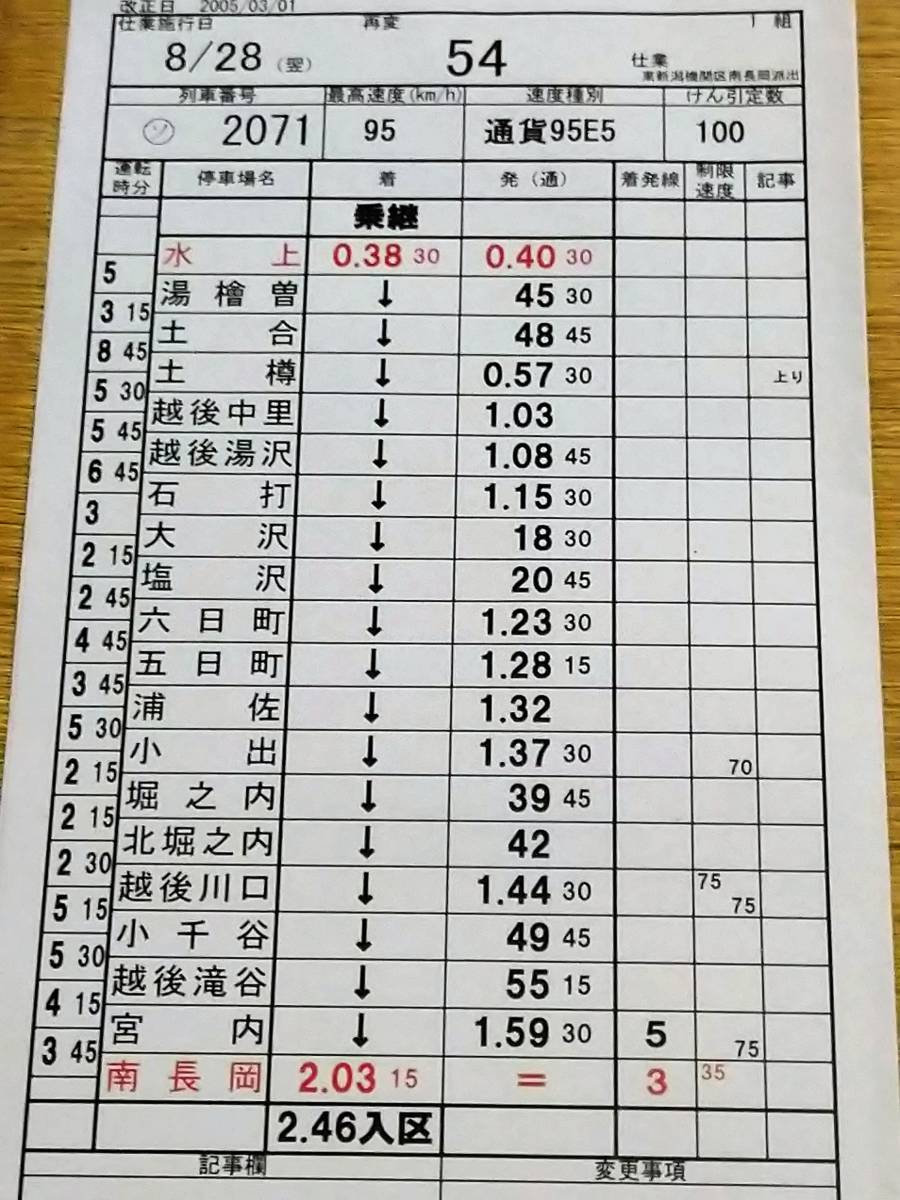 改正日 2005/03/01
仕業施行日 再変 1 組
8/28 (翌) 54 仕業
東新潟機関区南長岡派出
列車番号 最高速度(km/h) 速度種別 けん引定数
ソ 2071 95 通貨95E5 100
運転時分 停車場名 着 発(通) 着発線 制限速度 記事
乗継
水上 0.38 30 0.40 30
5
湯檜曽 ↓ 45 30
3 15
土合 ↓ 48 45
8 45
土樽 ↓ 0.57 30 上り
5 30
越後中里 ↓ 1.03
5 45
越後湯沢 ↓ 1.08 45
6 45
石打 ↓ 1.15 30
3
大沢 ↓ 18 30
2 15
塩沢 ↓ 20 45
2 45
六日町 ↓ 1.23 30
4 45
五日町 ↓ 1.28 15
3 45
浦佐 ↓ 1.32
5 30
小出 ↓ 1.37 30 70
2 15
堀之内 ↓ 39 45
2 15
北堀之内 ↓ 42
2 30
越後川口 ↓ 1.44 30 75 75
5 15
小千谷 ↓ 49 45
5 30
越後滝谷 ↓ 55 15
4 15
宮内 ↓ 1.59 30 5 75
3 45
南長岡 2.03 15 = 3 35
2.46入区
記事欄 変更事項